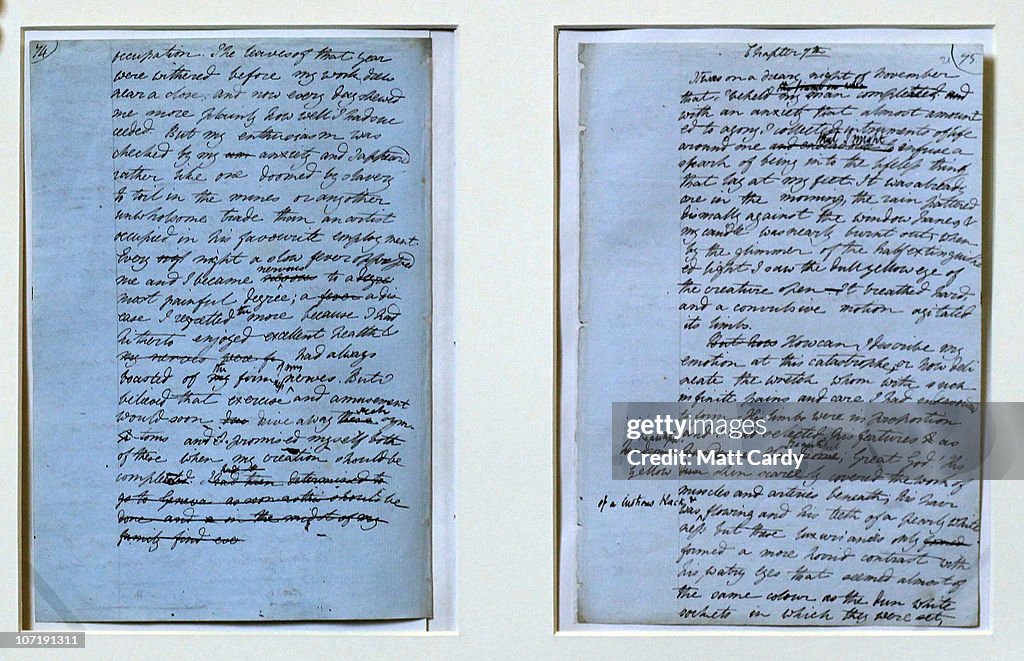 74
occupation. The leaves of that year
were withered before my work drew
near a close. and now every day shewed
me more plainly how well I had suc
ceeded. But my enthusiasm was
checked by my anxiety and I appeared
rather like one doomed by slavery
to toil in the mines or any other
unwholsome trade than an artist
occupied in his favourite employment.
Every night a slow fever oppressed
nervous
me and I became to a
most painful degree; a fever a dis
ease I regretted the more because I had
hitherto enjoyed excellent health &
my nerves were had always
boasted of the firmness of my nerves. But I
beleived that exercise and amusement
would soon drive away such symp
toms and I promised myself both
of these when my creation should be
compleated. I had then determined to
go to Geneva as soon as this should be
done and in the midst of my
family find
75
Chapter 7th
It was on a dreary night of November
that I beheld my man compleated and
with an anxiety that almost amount
ed to agony I collected instruments of life
that I might
around me infuse a
spark of being into the lifeless thing
that lay at my feet. It was already
one in the morning, the rain pattered
dismally against the window panes &
my candle was nearly burnt out, when
by the glimmer of the half extinguish
ed light I saw the dull yellow eye of
the creature open. It breathed hard
and a convulsive motion agitated
its limbs.
But how How can I describe my
emotion at this catastrophe, or how deli
neate the wretch whom with such
infinite pains and care I had endeavoured
to form. His limbs were in proportion
and I had selected his features as
Great God! His
yellow skin scarcely covered the work of
muscles and arteries beneath; his hair
of a lustrous black &
was flowing and his teeth of a pearly white
ness but these luxuriances only formed
formed a more horrid contrast with
his watry eyes that seemed almost of
the same colour as the dun white
sockets in which they were set,
gettyimages
Matt Cardy
107191311